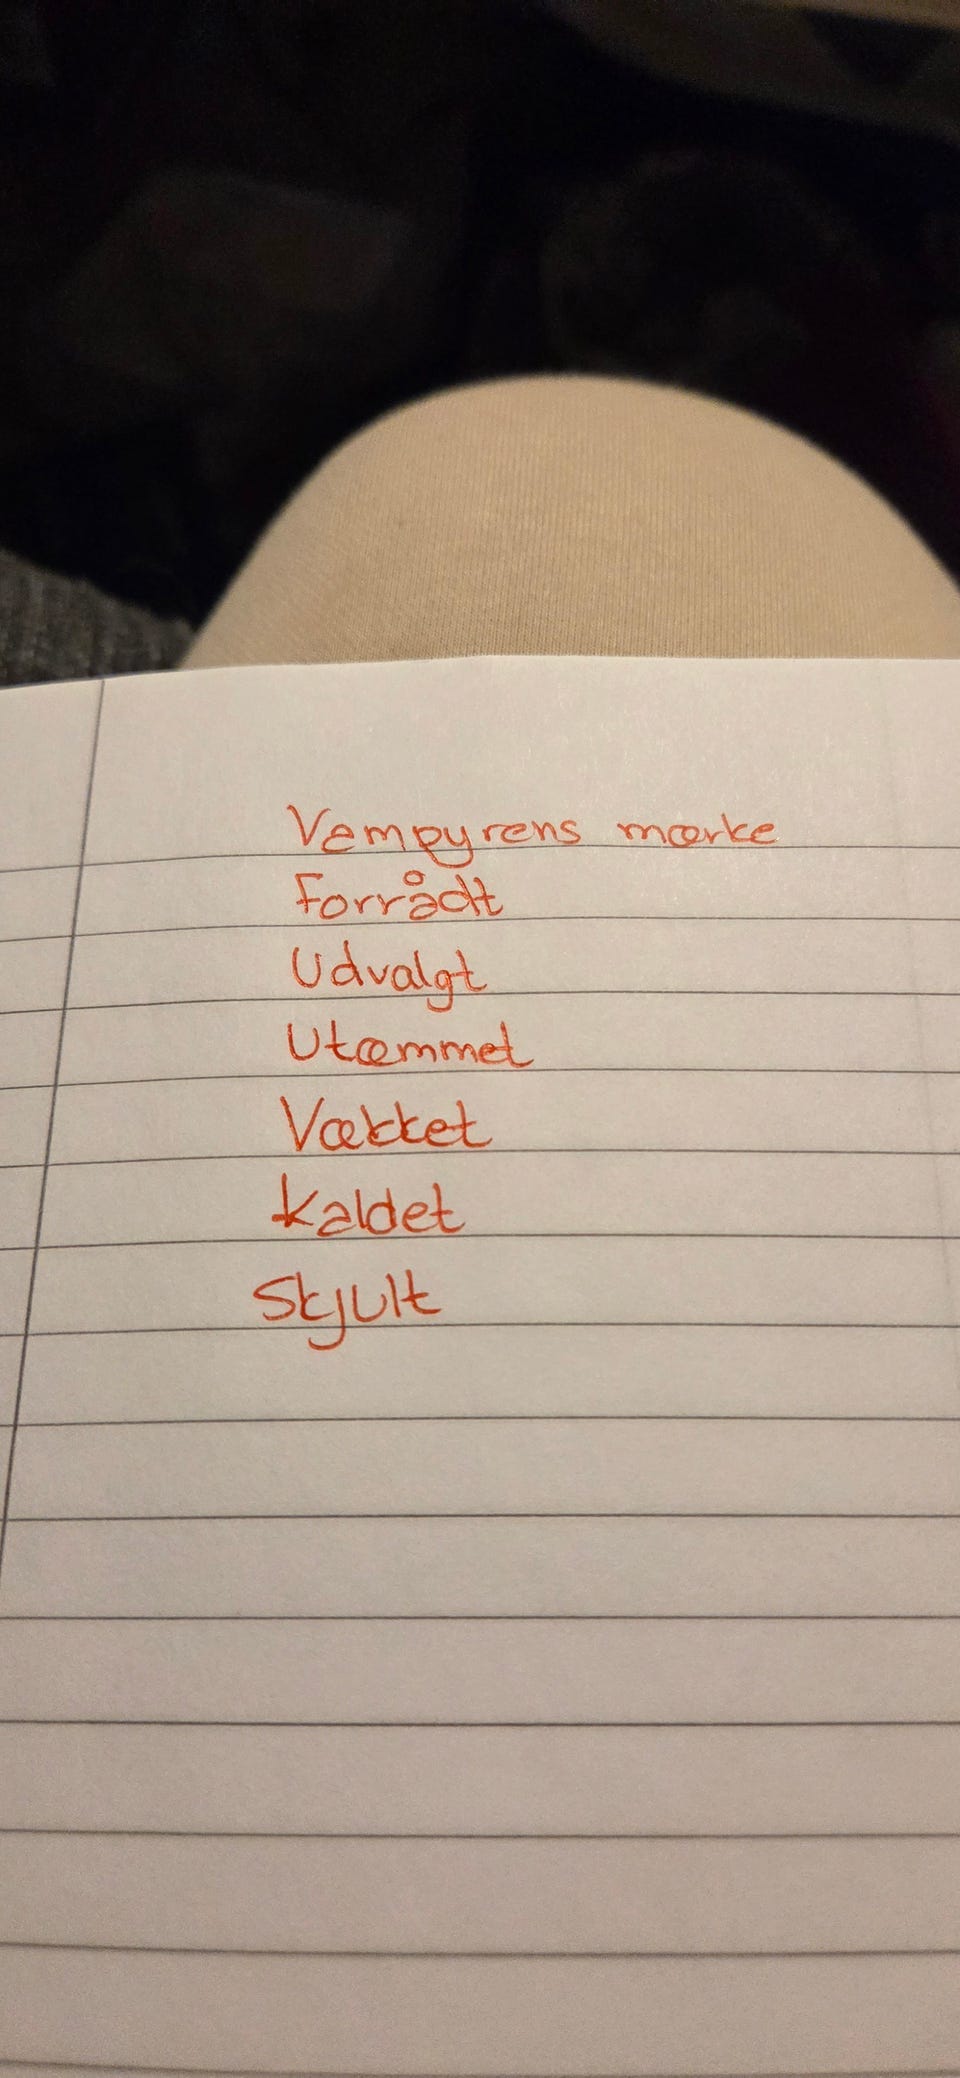 Vampyrens mærke
Forrådt
Udvalgt
Utæmmet
Vækket
Kaldet
Skjult